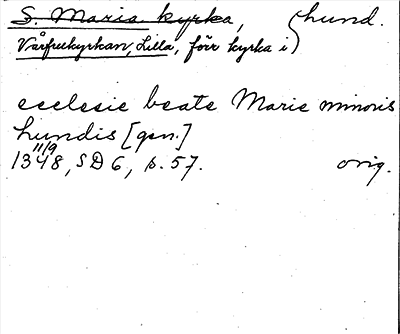 S. Maria kyrka, (Lund.
Vårfrukyrkan, Lilla, förr kyrka i)
ecclesie beate Marie minoris
Lundis [gen.]
11/9
1348, SD 6, s. 57. orig.